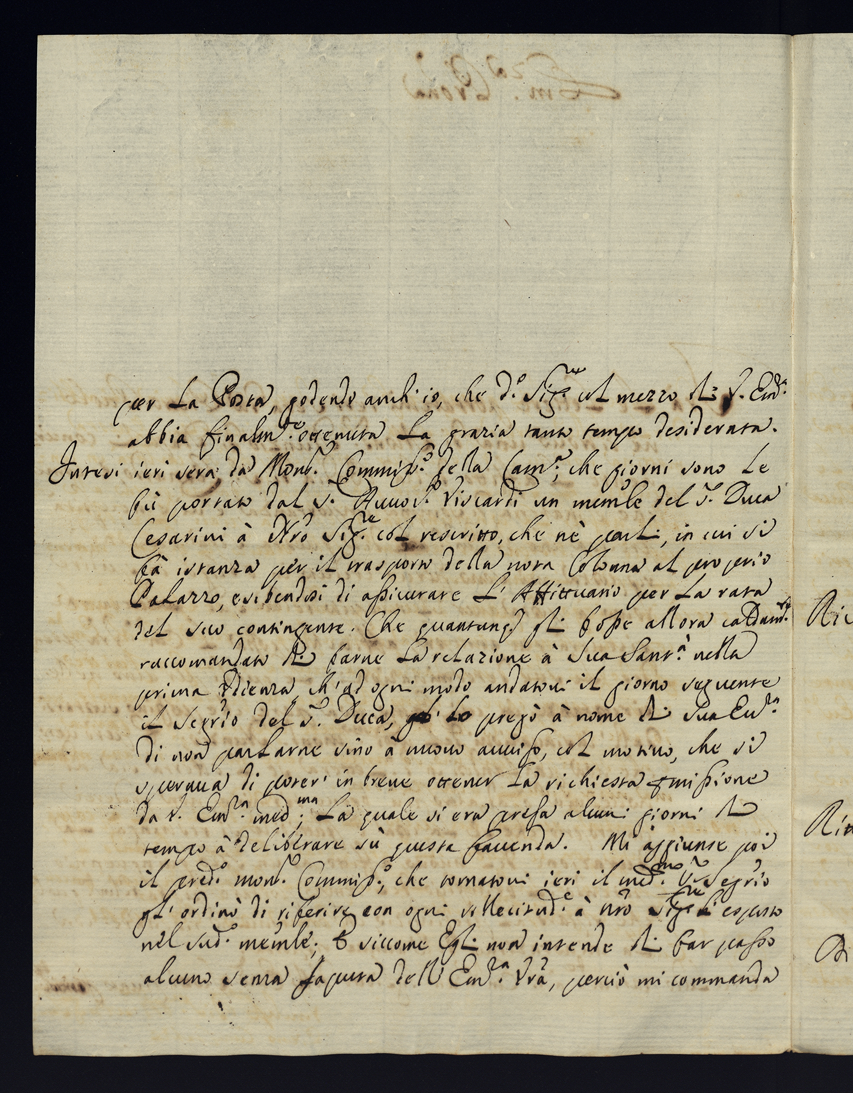 per La Posta, godendo anch'io, che d.º Sig.re col mezzo di V. Em.za
abbia finalm.te ottenuta La grazia tanto tempo desiderata.
Intesi ieri sera da Mons.r Commiss.º della Cam.ra, che giorni sono Le
fù portato dal S.r Avvo.to Viscardi un mem.le del S.r Duca
Cesarini à Nro Sig.re col rescritto, che nè parli, in cui si
fà istanza per il trasporto della nota Colonna al proprio
Palazzo, esibendosi di assicurare L'Affittuario per La rata
del suo contingente. Che quantunq; gli fosse allora caldam.te
raccomandato di farne La relazione à Sua Sant.à nella
prima Udienza, ch'ad ogni modo andatovi il giorno seguente
il Segrio del S.r Duca, Lo pregò à nome di Sua Em.za
di non parlarne sino à nuovo avviso, col motivo, che si
sperava di poter' in breve ottener La richiesta pmissione
da V. Em.za med.ma; La quale si era presa alcuni giorni di
tempo à deliberare sù questa facenda. Mi aggiunse poi
il pred.º mons.r Commiss.º, che tornatovi ieri il med.mo S.r Segrio
gl'ordinò di riferire con ogni sollecitud.e à Nrò Sig.re L'esposto
nel sud.º mem.le; E siccome Egli non intende di far passo
alcuno senza saputa dell'Em.za Vrã, perciò mi commanda